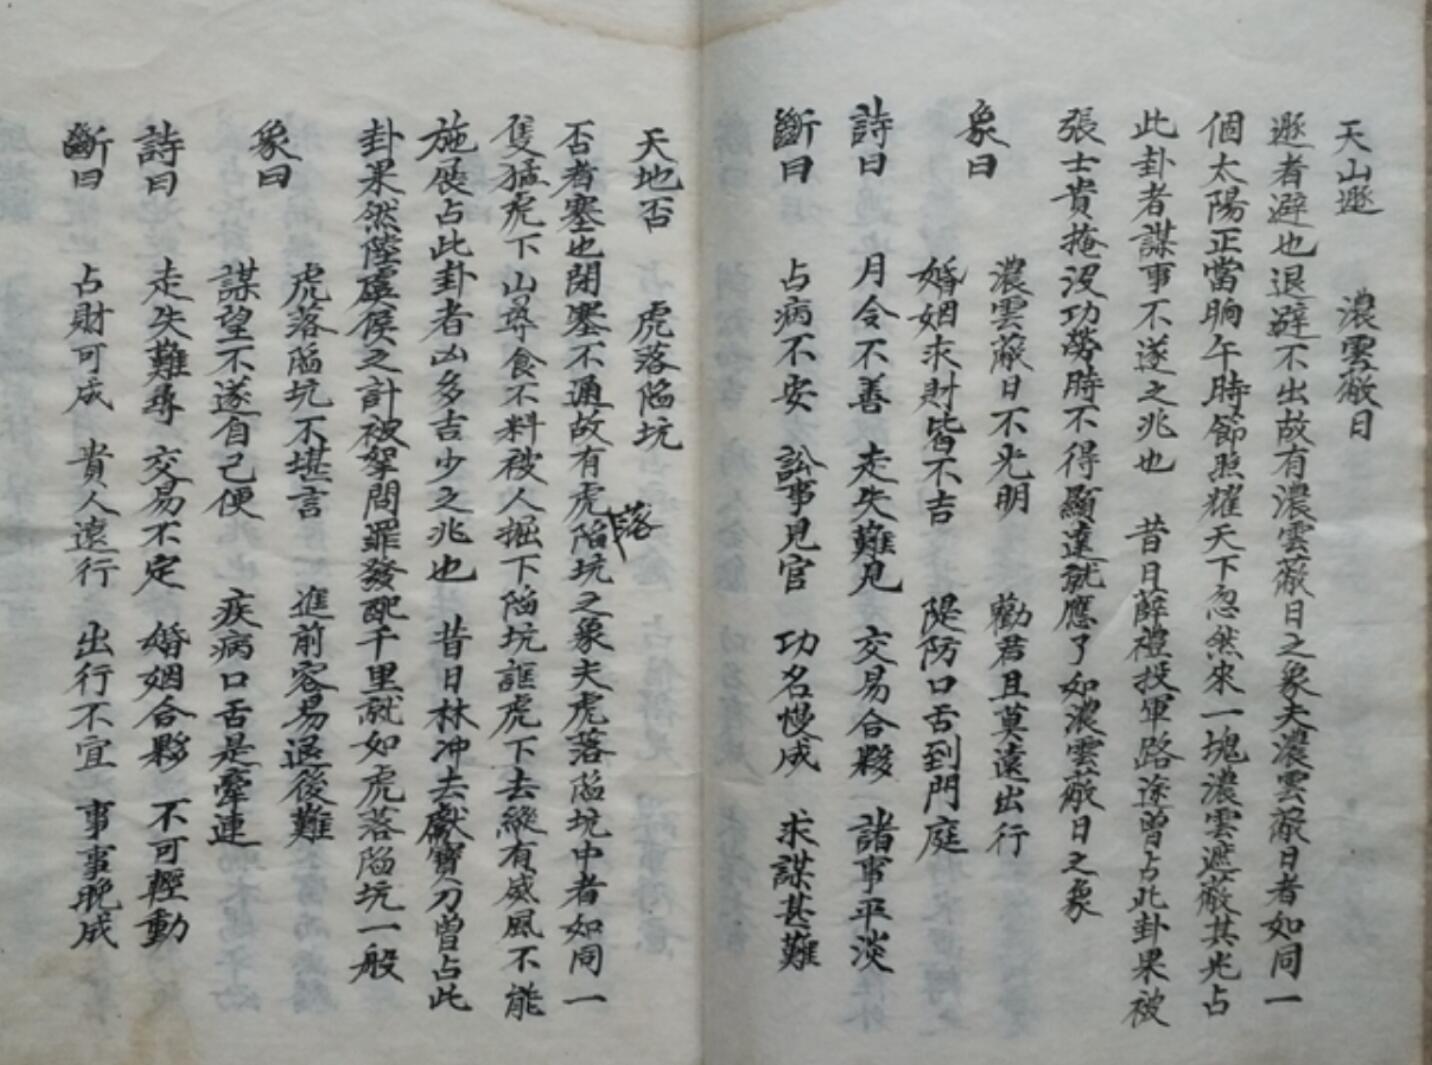 天山遯 濃雲蔽日
遯者避也退避不出故有濃雲蔽日之象夫濃雲蔽日者如同一
個太陽正當晌午時節照耀天下忽然來一塊濃雲遮蔽其光占
此卦者謀事不遂之兆也 昔日薛禮投軍路途曾占此卦果被
張士貴掩沒功勞時不得顯達就應了如濃雲蔽日之象
象曰 濃雲蔽日不光明 勸君且莫遠出行
婚姻求財皆不吉 隄防口舌到門庭
詩曰 月令不善 走失難見 交易合夥 諸事平淡
斷曰 占病不安 訟事見官 功名慢成 求謀甚難
天地否 虎落陷坑
否者塞也閉塞不通故有虎落陷坑之象夫虎落陷坑中者如同一
隻猛虎下山尋食不料被人掘下陷坑誆虎下去縱有威風不能
施展占此卦者凶多吉少之兆也 昔日林冲去獻寶刀曾占此
卦果然陸虞侯之計被拏問罪發配千里就如虎落陷坑一般
象曰 虎落陷坑不堪言 進前容易退後難
謀望不遂自己便 疾病口舌是牽連
詩曰 走失難尋 交易不定 婚姻合夥 不可輕動
斷曰 占財可成 貴人遠行 出行不宜 事事晚成